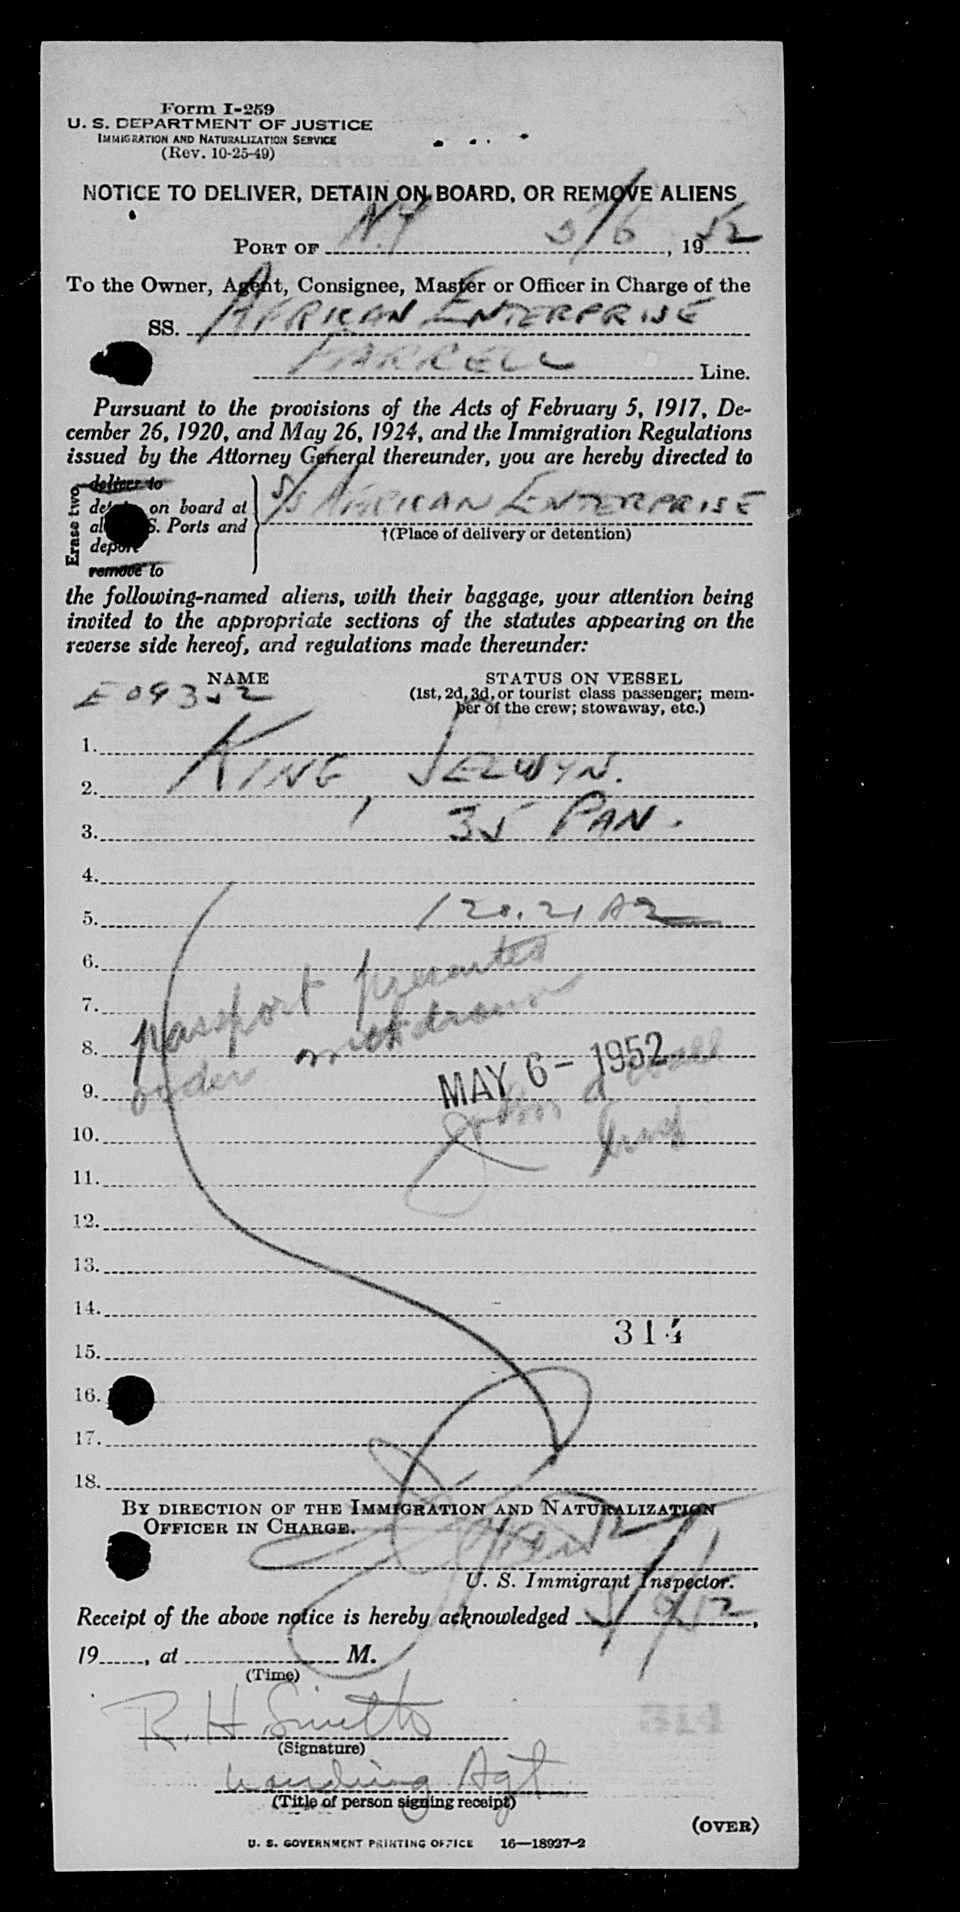 Form I-259
U. S. DEPARTMENT OF JUSTICE
IMMIGRATION AND NATURALIZATION SERVICE
(Rev. 10-25-49)
NOTICE TO DELIVER, DETAIN ON BOARD, OR REMOVE ALIENS
PORT OF N.Y 5/6, 1952
To the Owner, Agent, Consignee, Master or Officer in Charge of the
SS. AFRICAN ENTERPRISE
FARRELL Line.
Pursuant to the provisions of the Acts of February 5, 1917, De-
cember 26, 1920, and May 26, 1924, and the Immigration Regulations
issued by the Attorney General thereunder, you are hereby directed to
Erase two
deliver to
on board at
S. Ports and
deport
remove to
S/S AFRICAN ENTERPRISE
†(Place of delivery or detention)
the following-named aliens, with their baggage, your attention being
invited to the appropriate sections of the statutes appearing on the
reverse side hereof, and regulations made thereunder:
NAME STATUS ON VESSEL
(1st, 2d, 3d, or tourist class passenger; mem-
ber of the crew; stowaway, etc.)
E 09352
1.
2. KING, SELWYN.
3. 35 PAN.
4.
5. 120.21 A2
6.
7. passport presented
8. order withdrawn
MAY 6 - 1952
9. John
10.
11.
12.
13.
14.
314
15.
16.
17.
18.
BY DIRECTION OF THE IMMIGRATION AND NATURALIZATION
OFFICER IN CHARGE.
U. S. Immigrant Inspector.
Receipt of the above notice is hereby acknowledged ,
19 , at M.
(Time)
R. H.
314
(Signature)
Agt
(Title of person signing receipt)
(OVER)
U. S. GOVERNMENT PRINTING OFFICE 16—18927-2